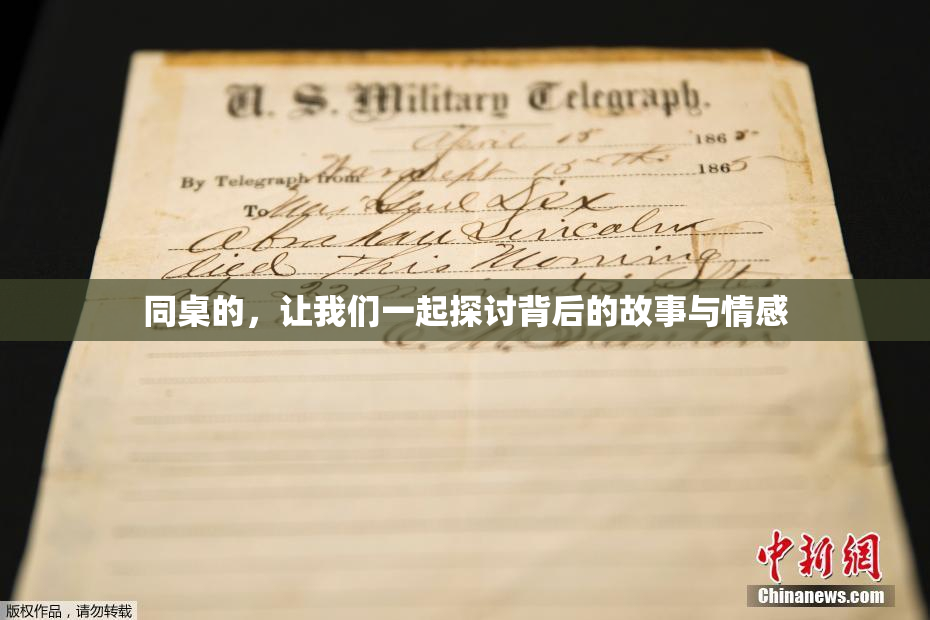 U. S. Military Telegraph.
April 15 1865
By Telegraph from War Dept 15th 1865
To Maj Genl Dix
Abraham Lincoln
died This Morning
at 22 minutes after
同桌的，让我们一起探讨背后的故事与情感
E. M. Stanton
中新網
Chinanews.com
版权作品，请勿转载